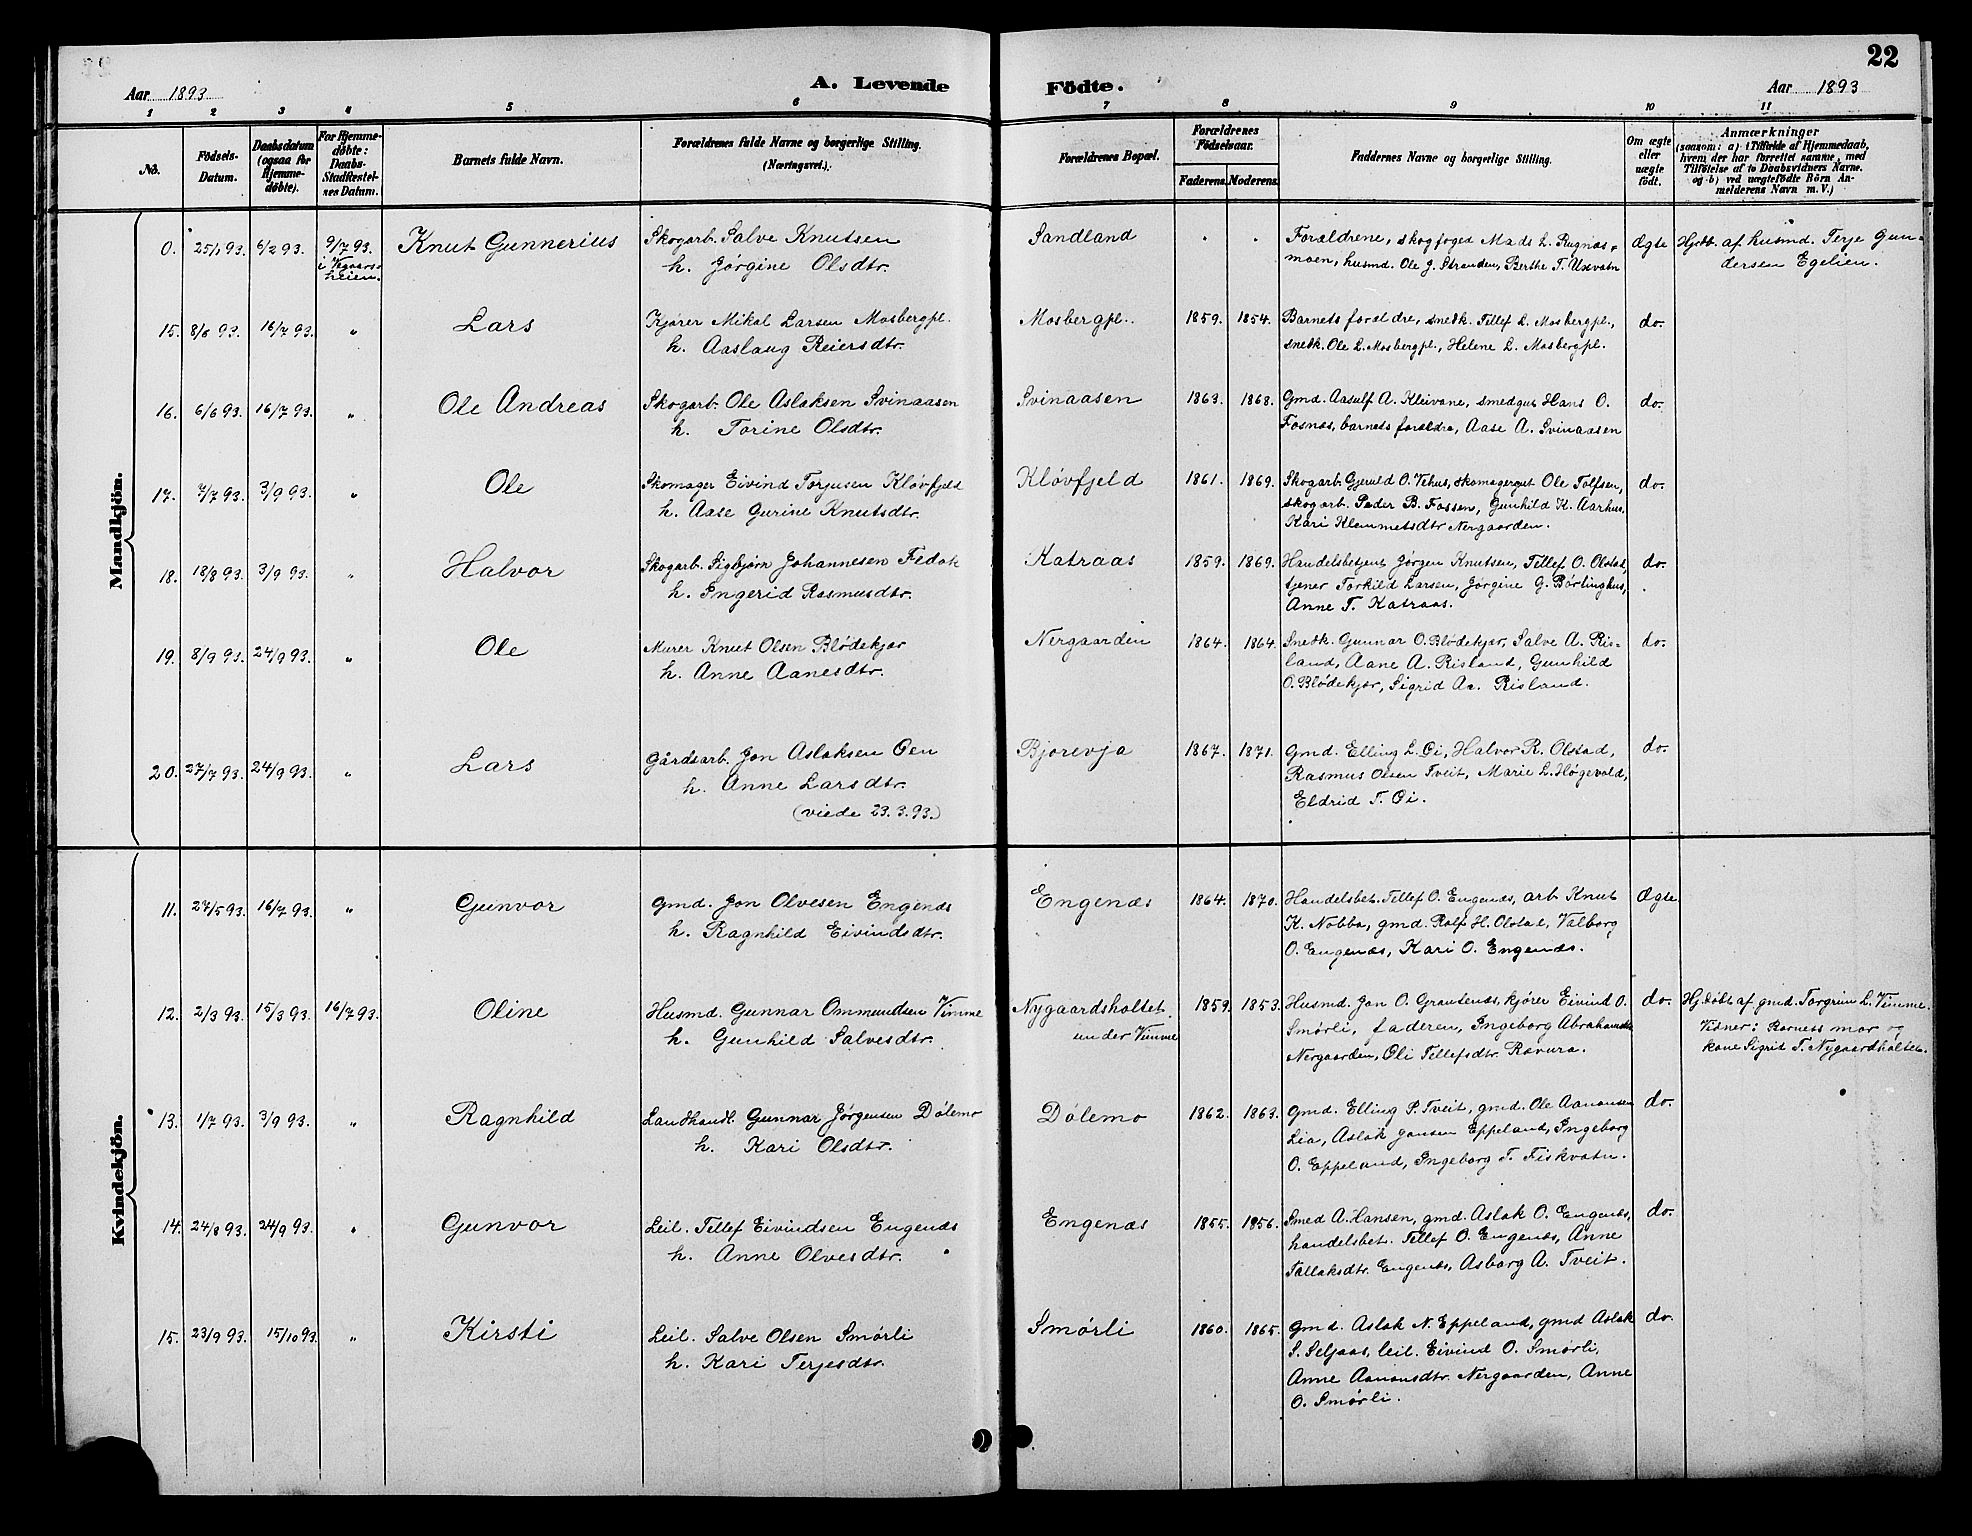 22
Aar 1893
A. Levende Födte.
Aar 1893
1 2 3 4 5 6 7 8 9 10 11
No.
Födsels-Datum.
Daabsdatum (ogsaa for Hjemmedöbte).
For Hjemmedöbte: Daabs-Stadfæstelsens Datum.
Barnets fulde Navn.
Forældrenes fulde Navne og borgerlige Stilling. (Næringsvei.)
Forældrenes Bopæl.
Forældrenes Födselsaar.
Faderens. Moderens.
Faddernes Navne og borgerlige Stilling.
Om ægte eller uægte født.
Anmærkninger
(saasom: a) i Tilfælde af Hjemmedaab, hvem der har forrettet samme, med Tilföielse af to Daabsvidners Navne. og b) ved uægtefödte Börn Anmelderens Navn m. V.)
Mandkjön.
0. 25/1 93. 6/2 93. 9/7 93. i Vegaarsheien. Knut Gunnerius
Skogarb. Salve Knutsen
h. Jørgine Olsdtr.
Sandland " "
Forældrene, skogfoged Mads L. Rugnæsmoen, husmd. Ole J. Stranden, Berthe T. Uxvatn
Ægte
Hjdbt. af husmd. Terje Gundersen Egelien.
15. 8/6 93. 16/7 93. " Lars
Kjører Mikal Larsen Mosbergpl.
h. Aaslaug Reiersdtr.
Mosbergpl. 1859. 1854.
Barnets forældre, snedk. Tellef L. Mosbergpl.,
snedk. Ole L. Mosbergpl., Helene L. Mosbergpl.
do.
16. 6/6 93. 16/7 93. " Ole Andreas
Skogarb. Ole Aslaksen Svinaasen
h. Torine Olsdtr.
Svinaasen 1863. 1868.
Gmd. Aasulf A. Kleivane, smedgut Hans O.
Fosnæs, barnets forældre, Aase A. Svinaasen
do.
17. 7/7 93. 3/9 93. " Ole
Skomager Eivind Torjusen Kløvfjeld
h. Aase Gurine Knutsdtr.
Kløvfjeld 1861. 1869.
Skogarb. Gjeruld O. Vehus, skomagergut Ole Tolfsen,
skogarb. Peder B. Fossen, Gunhild K. Aarhus,
Kari Klemmetsdtr Nergaarden.
do.
18. 18/8 93. 3/9 93. " Halvor
Skogarb. Sigbjørn Johannesen Fedok
h. Ingerid Rasmusdtr.
Katraas 1859. 1869.
Handelsbetjent Jørgen Knutsen, Tellef O. Olstad,
tjener Torkild Larsen, Jørgine G. Børlinghus,
Anne T. Katraas.
do.
19. 8/9 93. 24/9 93. " Ole
Murer Knut Olsen Blødekjær
h. Anne Aanesdtr.
Nergaarden 1864. 1864.
Snedk. Gunnar O. Blødekjær, Salve A. Risland, Aane A. Risland, Gunhild
O. Blødekjær, Sigrid Aa. Risland.
do.
20. 27/7 93. 24/9 93. " Lars
Gårdsarb. Jon Aslaksen Øen
h. Anne Larsdtr.
(viede 23.3.93.)
Bjorevja 1867. 1871.
Gmd. Elling L. Øi, Halvor R. Olstad,
Rasmus Olsen Tveit, Marie L. Høgevold,
Eldrid T. Øi.
do.
Kvindekjön.
11. 27/5 93. 16/7 93. " Gunvor
Gmd. Jon Olvesen Engenæs
h. Ragnhild Eivindsdtr.
Engenæs 1864. 1870.
Handelsbet. Tellef O. Engenæs, arb Knut
K. Nobba, gmd. Rolf H. Olstad, Valborg
O. Engenæs, Kari O. Engenæs.
Ægte
12. 2/3 93. 15/3 93. 16/7 93. Oline
Husmd. Gunnar Ommundsen Vimme
h. Gunhild Salvesdtr.
Nygaardsholtet under Vimme 1859. 1853.
Husmd. Jon O. Grautenæs, kjører Eivind O.
Smørli, faderen, Ingeborg Abrahamsdtr
Nergaarden, Oli Tellefsdtr. Ravura.
do.
Hj.døbt af gmd. Torgrim L. Vimme.
Vidner: Barnets mor og
kone Sigrid T. Nygaardholtet.
13. 1/7 93. 3/9 93. " Ragnhild
Landhandl. Gunnar Jørgensen Dølemo
h. Kari Olsdtr.
Dølemo 1862. 1863.
Gmd. Elling P. Tveit, gmd. Ole Aanonsen
Lia, Aslak Jonsen Eppeland, Ingeborg
O. Eppeland, Ingeborg T. Fiskvatn.
do.
14. 24/8 93. 24/9 93. " Gunvor
Leil. Tellef Eivindsen Engenæs
h. Anne Olvesdtr.
Engenæs 1855. 1856.
Smed A. Hansen, gmd. Aslak O. Engenæs,
handelsbet. Tellef O. Engenæs, Anne
Tallaksdtr. Engenæs, Asborg A. Tveit.
do.
15. 23/9 93. 15/10 93. " Kirsti
Leil. Salve Olsen Smørli
h. Kari Terjesdtr.
Smørli 1860. 1865.
Gmd. Aslak N. Eppeland, gmd Aslak
S. Seljaas, leil. Eivind O. Smørli,
Anne Aanonsdtr. Nergaarden, Anne
O. Smørli.
do.